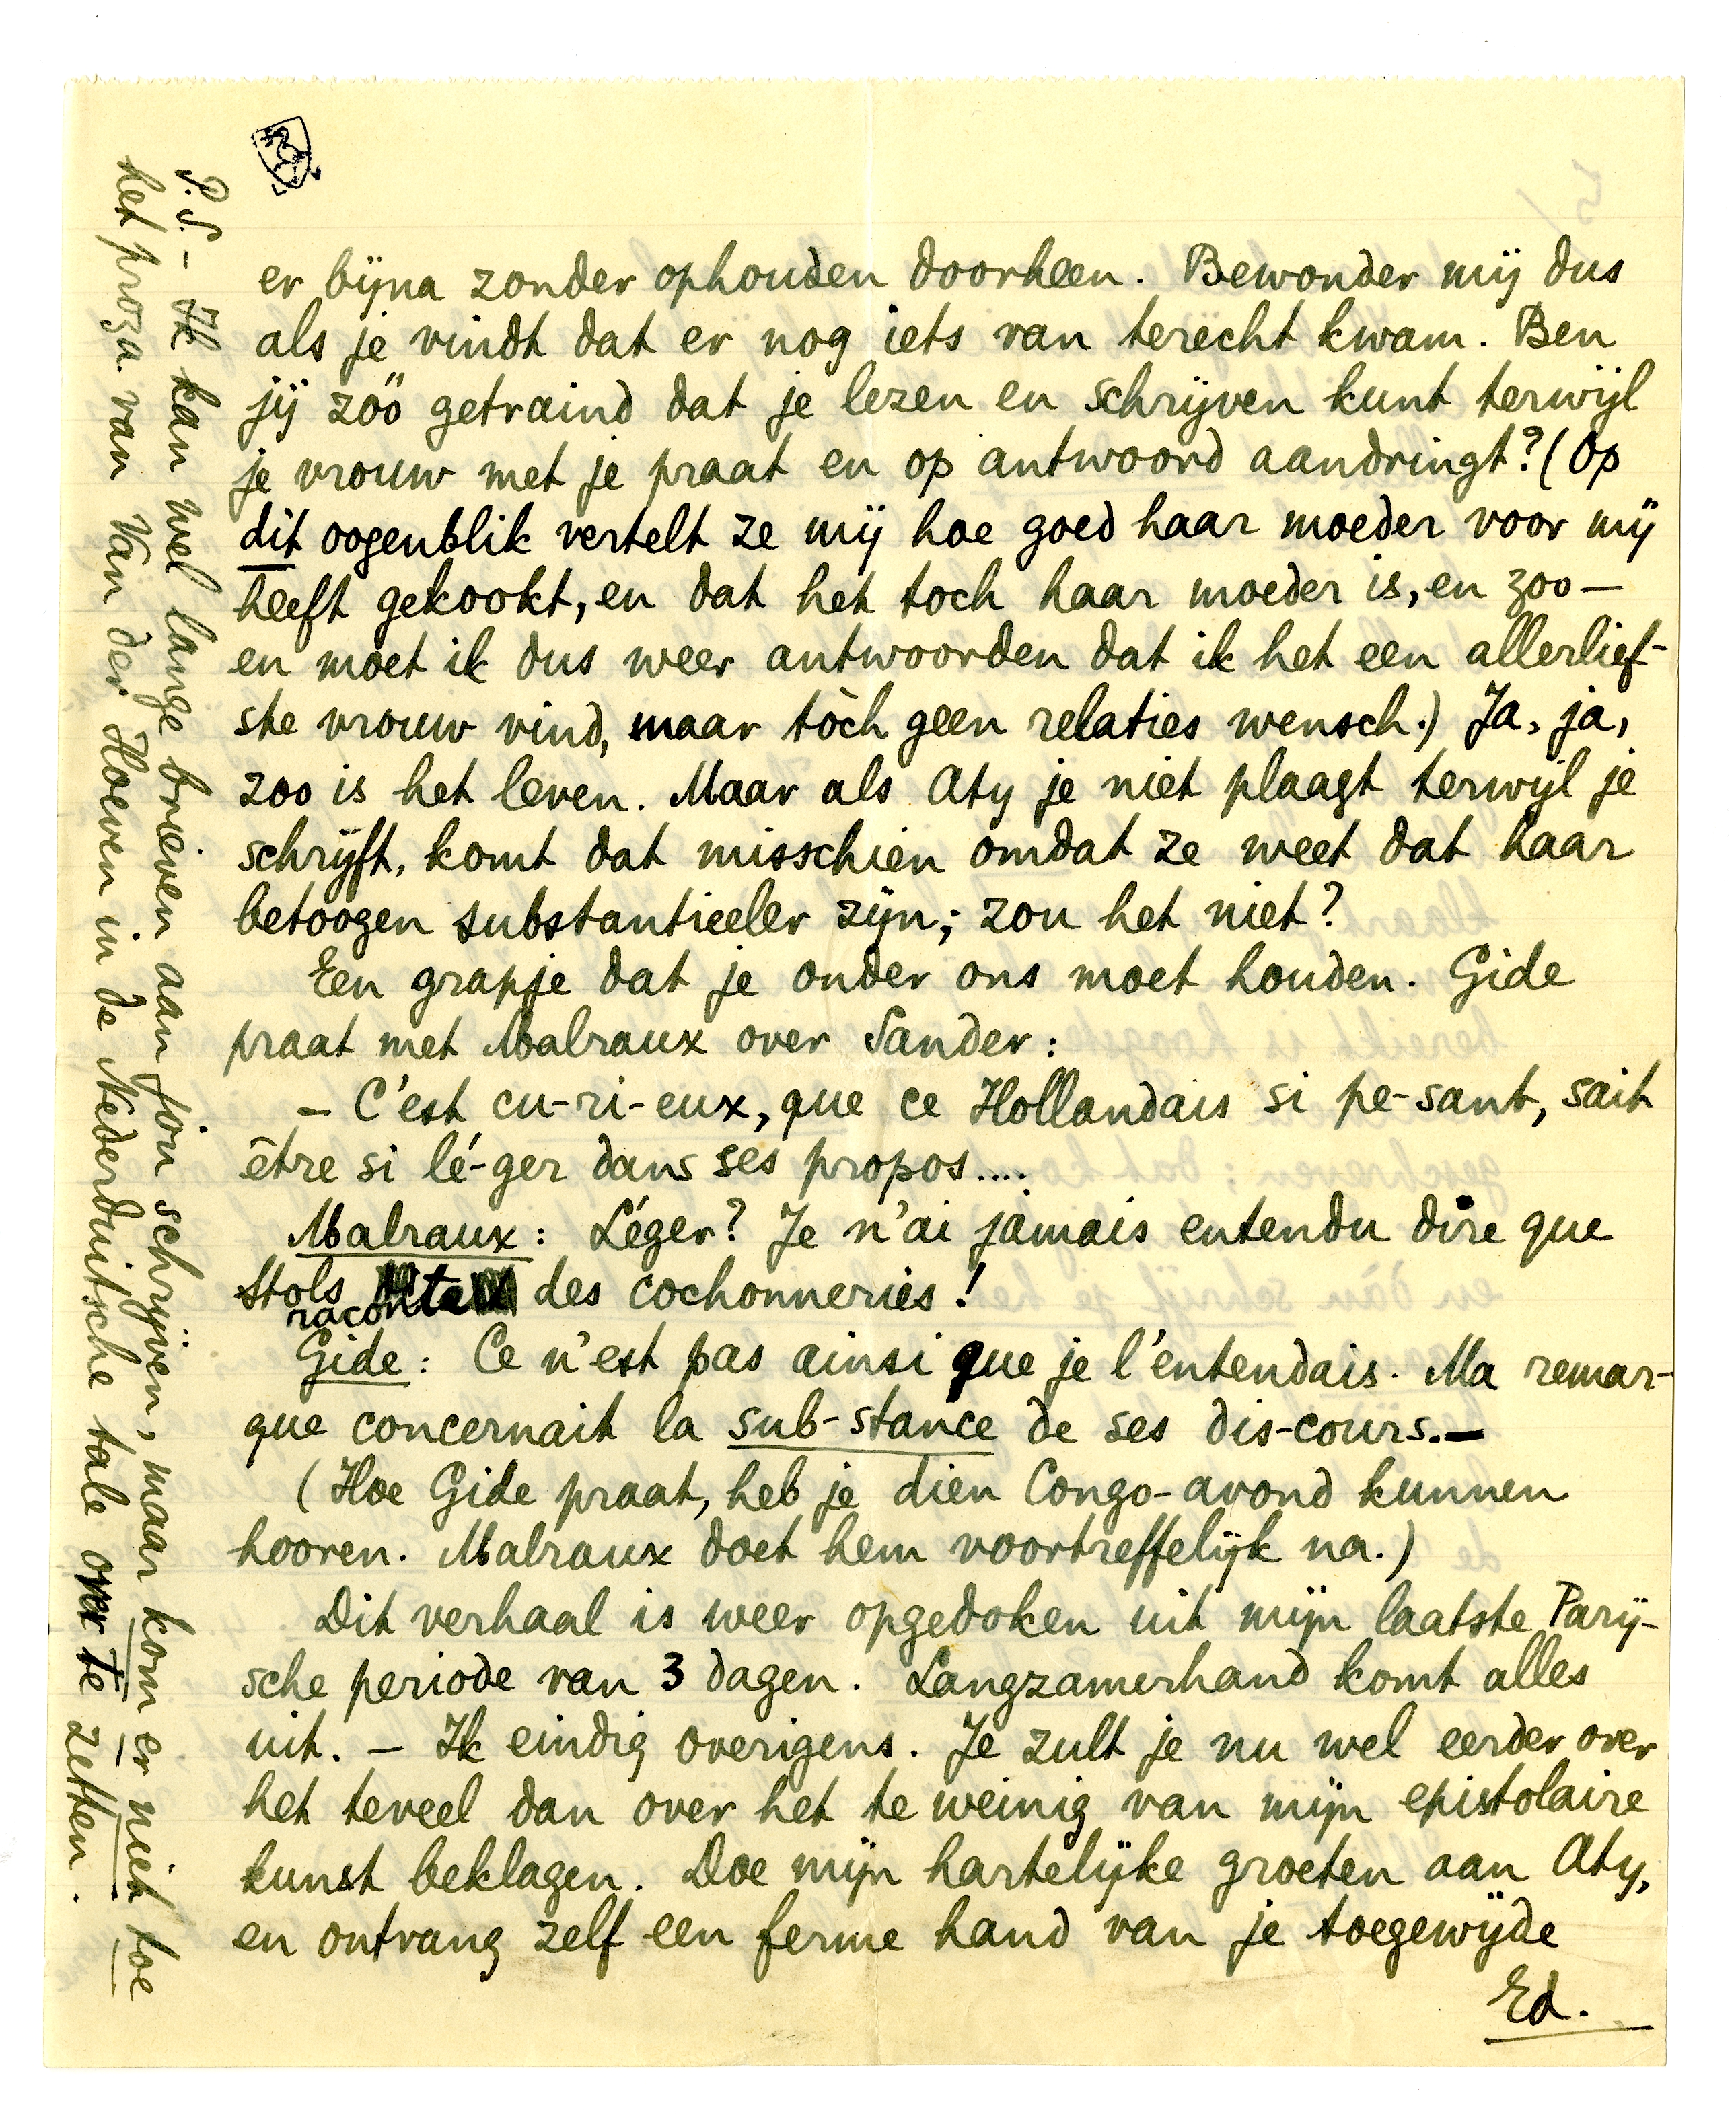 er bijna zonder ophouden doorheen. Bewonder mij dus
als je vindt dat er nog iets van terecht kwam. Ben
jij zóó getraind dat je lezen en schrijven kunt terwijl
je vrouw met je praat en op antwoord aandringt? (Op
dit oogenblik vertelt ze mij hoe goed haar moeder voor mij
heeft gekookt, en dat het toch haar moeder is, en zoo —
en moet ik dus weer antwoorden dat ik het een allerlief-
ste vrouw vind, maar tòch geen relaties wensch.) Ja, ja,
zoo is het leven. Maar als Aty je niet plaagt terwijl je
schrijft, komt dat misschien omdat ze weet dat haar
betoogen substantieeler zijn; zou het niet?
Een grapje dat je onder ons moet houden. Gide
praat met Malraux over Sander:
— C'est cu-ri-eux, que ce Hollandais si pe-sant, sait
être si lé-ger dans ses propos....
Malraux: Léger? Je n'ai jamais entendu dire que
Stols raconta des cochonneries!
Gide: Ce n'est pas ainsi que je l'entendais. Ma remar-
que concernait la sub-stance de ses dis-cours. —
(Hoe Gide praat, heb je dien Congo-avond kunnen
hooren. Malraux doet hem voortreffelijk na.)
Dit verhaal is weer opgedoken uit mijn laatste Parij-
sche periode van 3 dagen. Langzamerhand komt alles
uit. — Ik eindig overigens. Je zult je nu wel eerder over
het teveel dan over het te weinig van mijn epistolaire
kunst beklagen. Doe mijn hartelijke groeten aan Aty,
en ontvang zelf een ferme hand van je toegewijde
Ed.
P.S. – Ik kan wel lange brieven aan jou schrijven, maar kom er niet toe
het proza van Van der Hoeven in de Nederduitsche tale over te zetten.